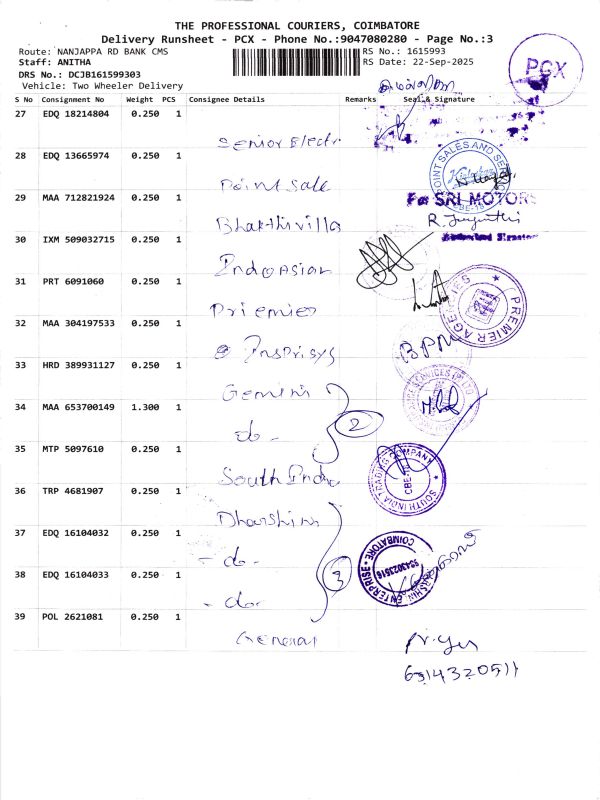 THE PROFESSIONAL COURIERS, COIMBATORE
Delivery Runsheet - PCX - Phone No.:9047080280 - Page No.:3
Route: NANJAPPA RD BANK CMS RS No.: 1615993
Staff: ANITHA RS Date: 22-Sep-2025
DRS No.: DCJB161599303
Vehicle: Two Wheeler Delivery
PCX
S No Consignment No Weight PCS Consignee Details Remarks Seal & Signature
27 EDQ 18214804 0.250 1
Senior Electr
28 EDQ 13665974 0.250 1
Point Sale
POINT SALES AND SE
29 MAA 712821924 0.250 1
For SRI MOTORS
Bhakthi villa
30 IXM 509032715 0.250 1
Authorised Signatory
Indoasian
31 PRT 6091060 0.250 1
Priemier
PREMIER AGENCIES
32 MAA 304197533 0.250 1
Insprisys
BPM
33 HRD 389931127 0.250 1
Gemini
34 MAA 653700149 1.300 1
-do-
2
35 MTP 5097610 0.250 1
South India
SOUTH INDIA TRADING COMPANY
36 TRP 4681907 0.250 1
Dharshini
37 EDQ 16104032 0.250 1
-do-
COIMBATORE
9543023516
ENTERPRISE
38 EDQ 16104033 0.250 1
3
-do-
39 POL 2621081 0.250 1
General
6314320511